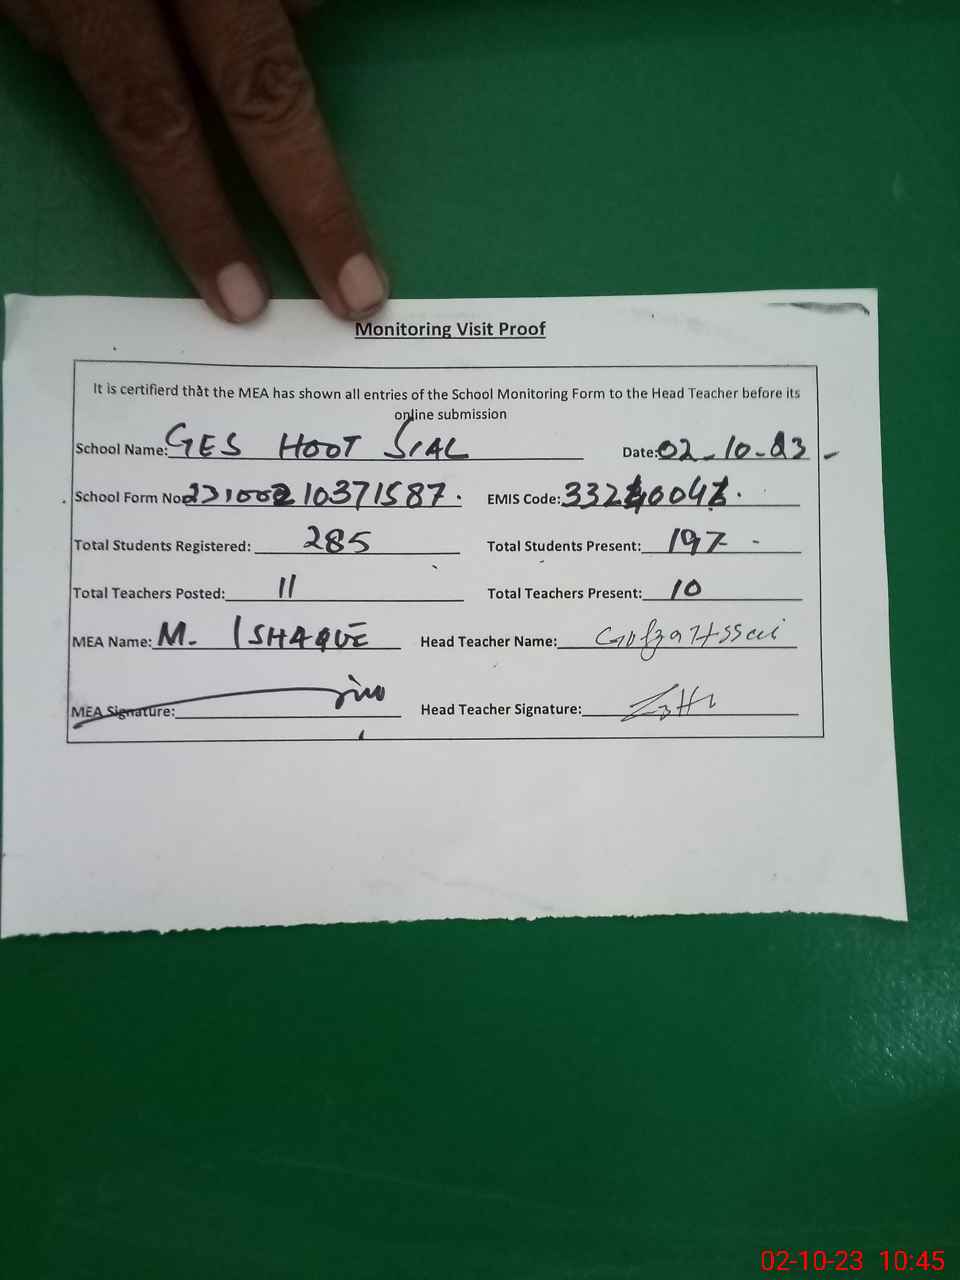 Monitoring Visit Proof
It is certifierd that the MEA has shown all entries of the School Monitoring Form to the Head Teacher before its
online submission
School Name: GES HOOT SIAL Date: 02-10-23
School Form No: 23100210371587. EMIS Code:
Total Students Registered: 285 Total Students Present: 197
Total Teachers Posted: 11 Total Teachers Present: 10
MEA Name: M. ISHAQUE Head Teacher Name:
MEA Signature: Head Teacher Signature:
02-10-23 10:45